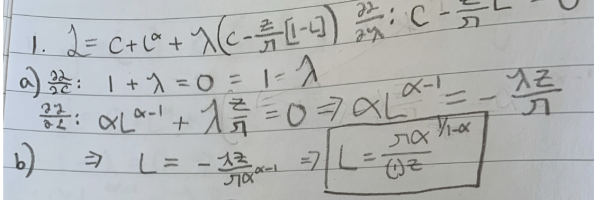 1. ℒ = C + L^α + λ(C - z/π [1-L]) ∂ℒ/∂λ : C -
a) ∂ℒ/∂C : 1 + λ = 0 = 1 = λ
∂ℒ/∂L : αL^(α-1) + λ z/π = 0 ⇒ αL^(α-1) = - λz/π
b) ⇒ L = - λz/πα^(α-1) ⇒ L = πα^(1/1-α)/(1)z